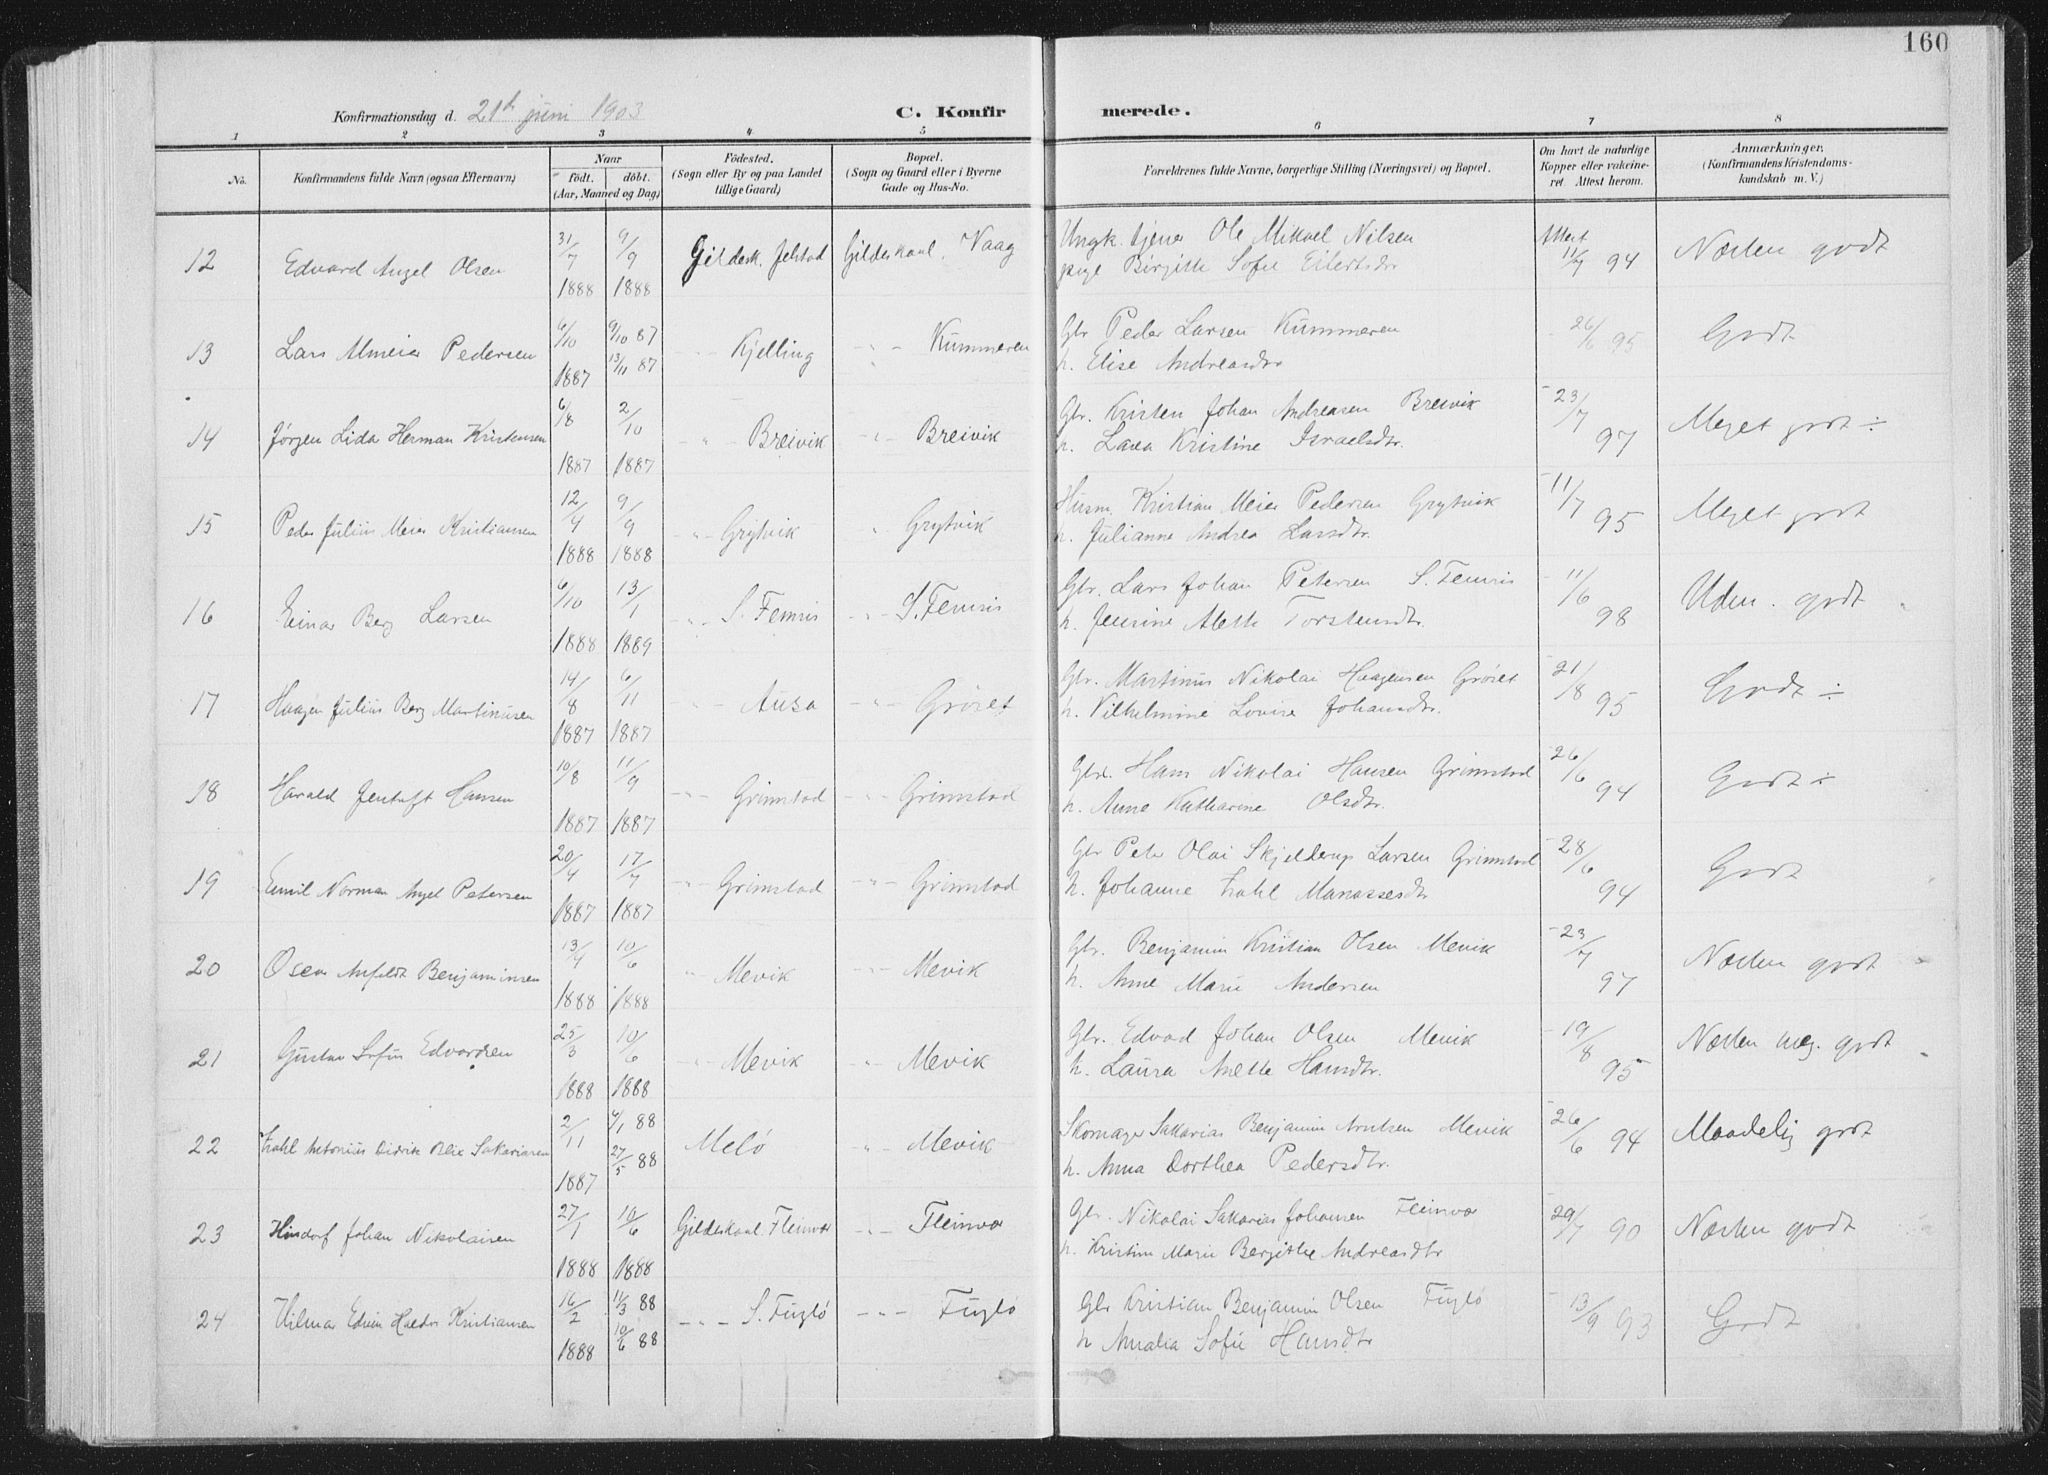 160
Konfirmationsdag d. 21de juni 1903
C. Konfirmerede.
1 2 3 4 5 6 7 8
No.
Konfirmandens fulde Navn (ogsaa Efternavn)
Naar
födt. döbt.
(Aar, Maaned og Dag)
Födested.
(Sogn eller By og paa Landet
tillige Gaard)
Bopæl.
(Sogn og Gaard eller i Byerne
Gade og Hus-No.
Forældrenes fulde Navne, borgerlige Stilling (Næringsvei) og Bopæl.
Om havt de naturlige
Kopper eller vakcine-
ret. Attest herom.
Anmærkninger.
(Konfirmandens Kristendoms-
kundskab m. V.)
12 Edvard Angel Olsen 31/7 1888 9/9 1888 Gildesk. Jelstad Gildeskaal Vaag
Ungk. tjener Ole Mikael Nilsen
pige Birgitte Sofie Eilertsdtr
Attest 11/7 94 Næsten godt
13 Lars Almeier Pedersen 6/10 1887 9/10 87 13/11 87 -"- Kjelling -"- Kummeren
Gbr Peder Larsen Kummeren
h. Elise Andreasdtr
- 26/6 95 Godt
14 Jørgen Lida Herman Kristensen 6/8 1887 2/10 1887 " Breivik -"- Breivik
Gbr. Kristen Johan Andreasen Breivik
h. Lava Kristine Israelsdtr.
- 23/7 97 Meget godt ÷
15 Peder Julius Meier Kristiansen 12/4 1888 9/9 1888 -"- Grytvik " Grytvik
Husm. Kristian Meier Pedersen Grytvik
h. Julianne Andrea Larsdtr.
- 11/7 95 Meget godt
16 Einar Berg Larsen 6/10 1888 13/1 1889 -"- S. Femris -"- S. Femris
Gbr. Lars Johan Petersen S. Femris
h. Jensine Aleth Torstensdtr.
- 11/6 98 Uden. godt
17 Haagen Julius Berg Martinusen 14/8 1887 6/11 1887 -"- Ausa -"- Grøset
Gbr. Martinus Nikolai Haagensen Grøset
h. Vilhelmine Lovise Johansdtr.
- 21/8 95 Godt ÷
18 Harald Jentoft Hansen 10/8 1887 11/9 1887 -"- Grimstad -"- Grimstad
Gbr. Hans Nikolai Hansen Grimstad
h. Anne Katharine Olsdtr.
- 26/6 94 Godt ÷
19 Emil Norman Angel Petersen 20/4 1887 17/7 1887 -"- Grimstad -"- Grimstad
Gbr Peter Olai Skjelderup Larsen Grimstad
h. Johanne Zahl Manassesdtr
- 28/6 94 Godt
20 Oscar Anfeldt Benjaminsen 13/4 1888 10/6 1888 " Mevik -"- Mevik
Gbr. Benjamin Kristian Olsen Mevik
h. Anne Marie Andersen
- 23/7 97 Næsten godt
21 Gustav Sofus Edvardsen 25/3 1888 10/6 1888 -"- Mevik -"- Mevik
Gbr. Edvad Johan Olsen Mevik
h. Laura Anette Hansdtr.
- 19/8 95 Næsten meg. godt
22 Zahl Antonius Didrik Blix Sakariasen 2/11 1887 6/1 88 27/5 88 Melø " Mevik
Skomager Sakarias Benjamin Arntsen Mevik
h. Anna Dorthea Pedersdtr.
- 26/6 94 Maadelig godt
23 Hindorf Johan Nikolaisen 27/1 1888 10/6 1888 Gildeskaal. Fleinvær -"- Fleinvær
Gbr. Nikolai Sakarias Johansen Fleinvær
h. Kristine Marie Bergitthe Andreasdtr
- 29/7 90 Næsten godt
24 Hilmar Edvin Haldor Kristiansen 16/2 1888 11/3 88 10/6 88 -"- S. Fuglø -"- Fuglø
Gbr Kristian Benjamin Olsen Fuglø
h Amalia Sofie Hansdtr
- 13/9 93 Godt